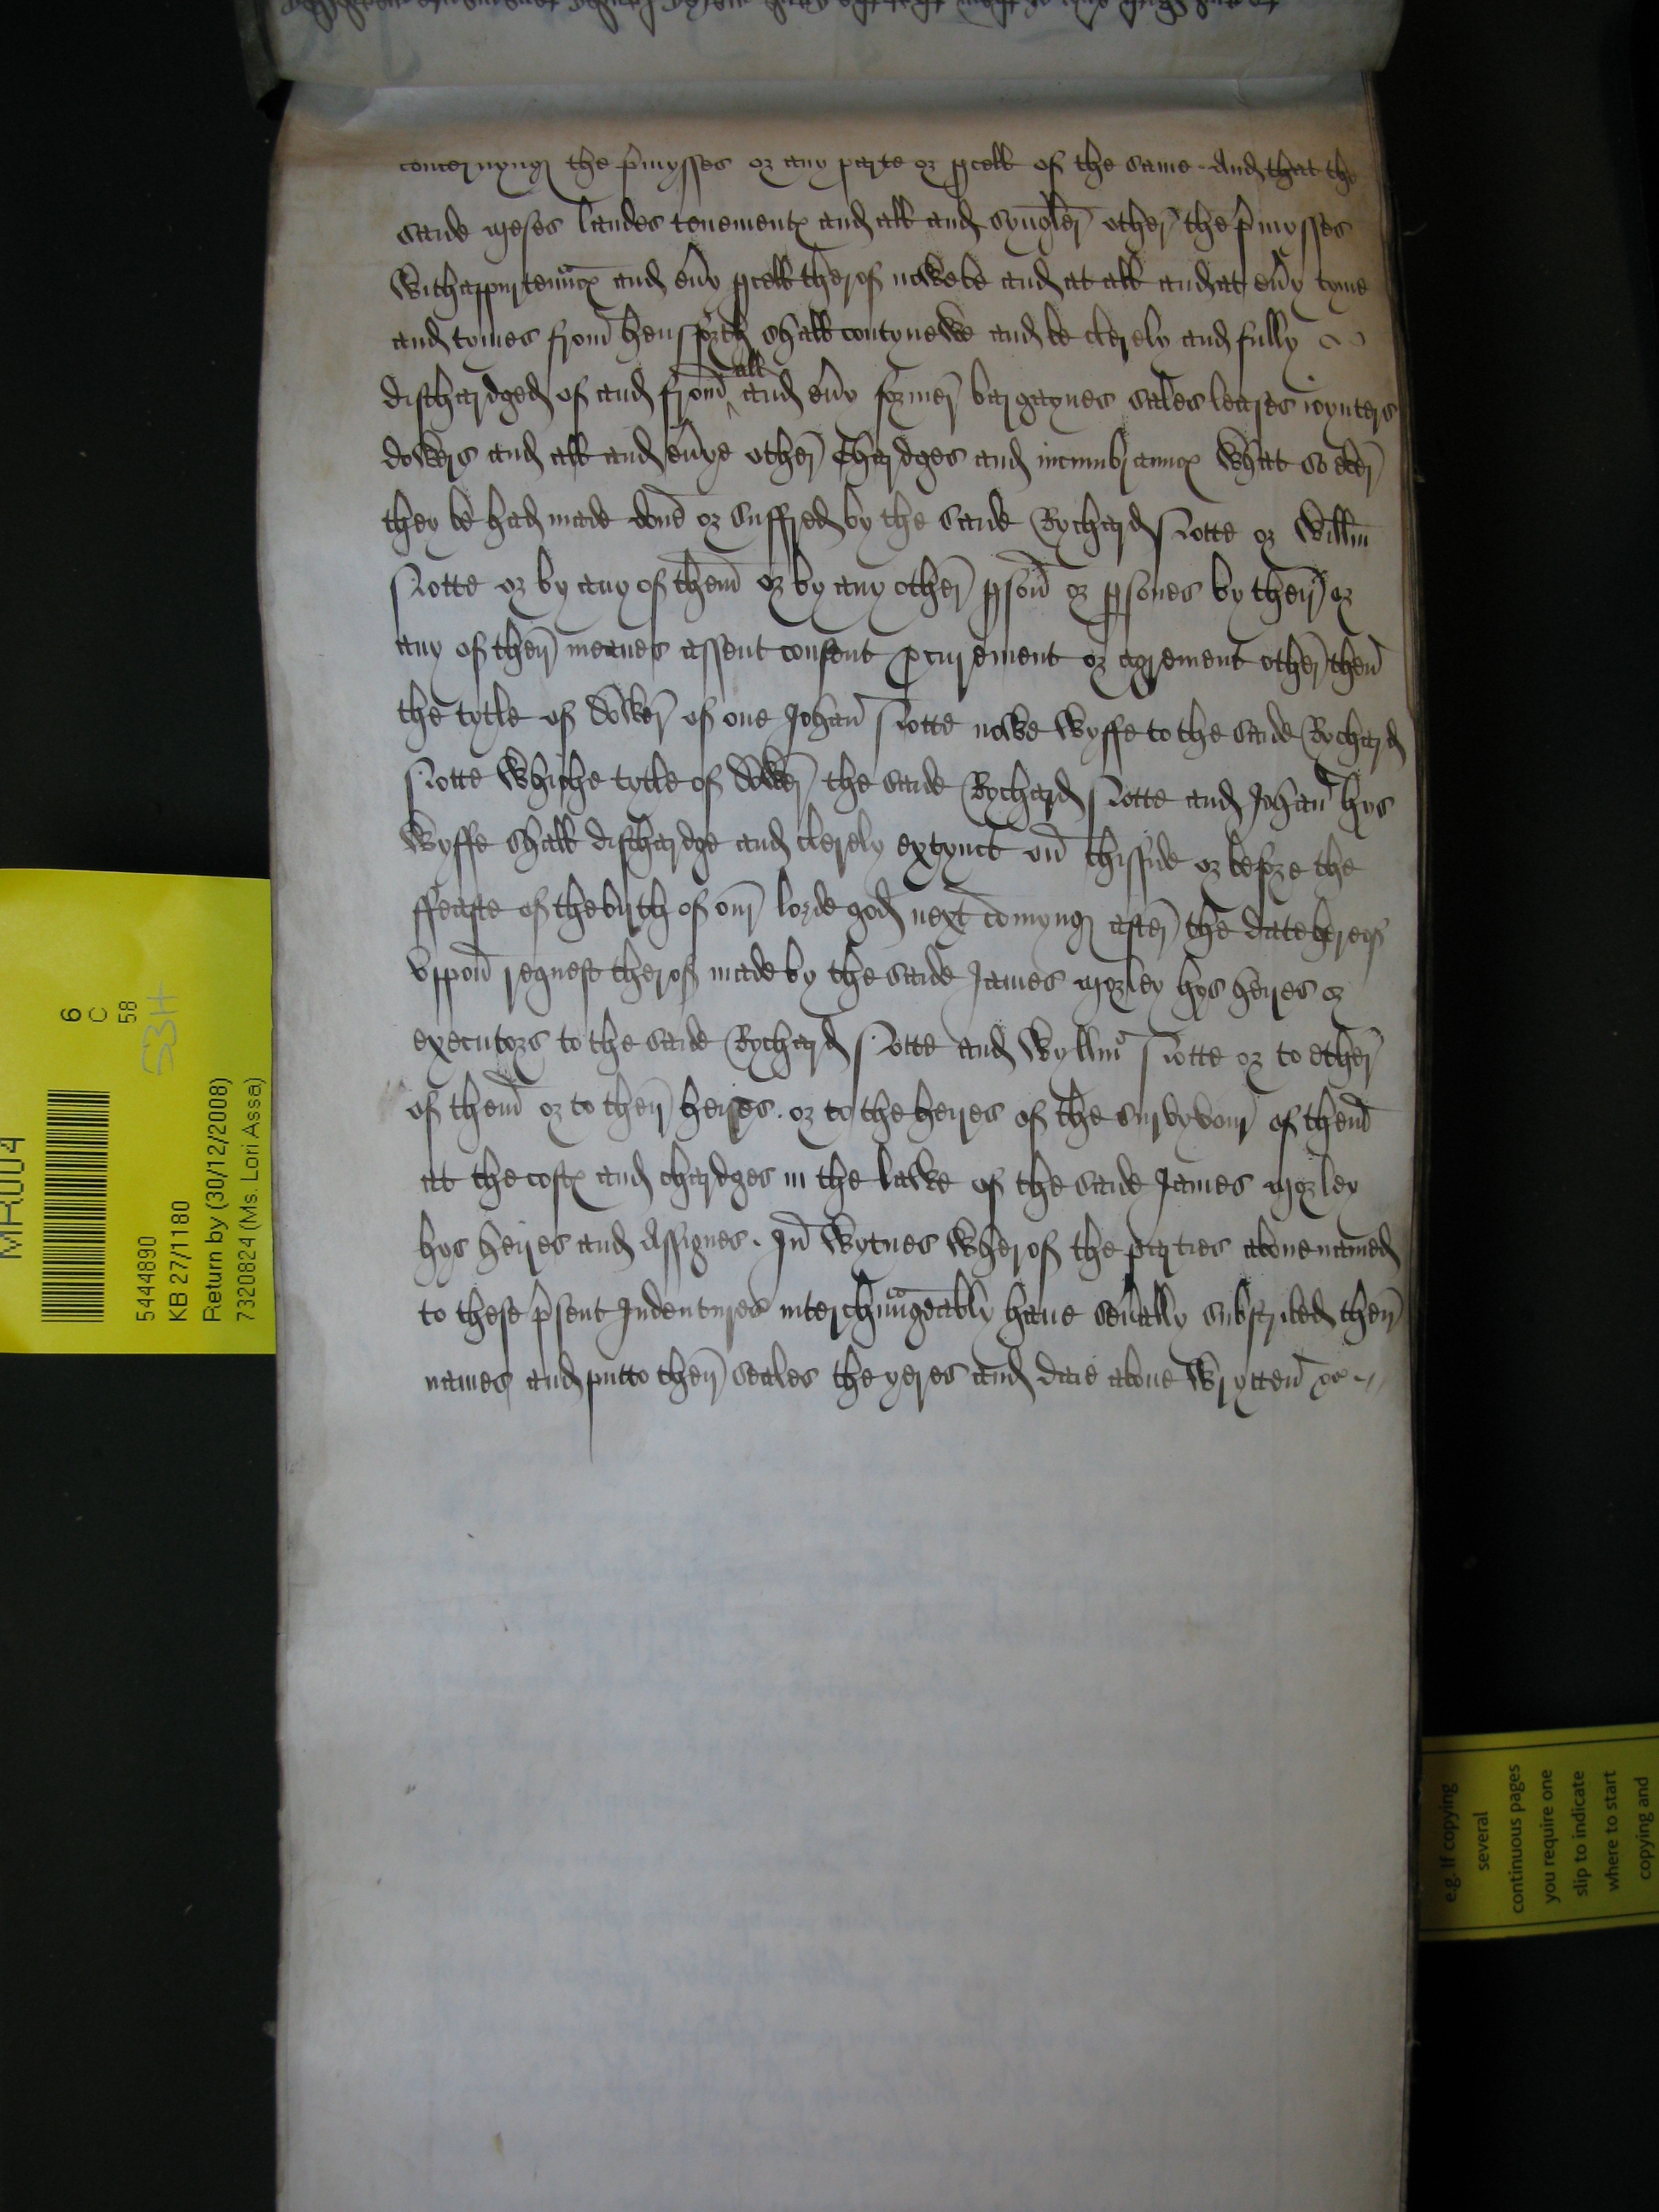 concernyng the p'mysses or any parte or pcell of the same. And that the
saide meses landes tenement℮ and all and synguler other the p'mysses
Withappurtennᵃnc℮ and eu'y pcell therof nowe be and at all and at eu'y tyme
and tymes from hensforth shall contynewe and be clerely and fully
dischardged of and from all and eu'y former bargaynes sales leases ioynters
dowers and all and eu'ye other Chardges and incumbrannc℮ What so euer
they be had made done or suffred by the saide Rychard Notte or Willm
Notte or by any of them or by any other pson or psones by their or
any of their meanes assent consent procurement or agrement other then
the tytle of dower of one Johan Notte nowe Wyffe to the saide Rychard
Notte Whiche tytle of dower the saide Rychard Notte and Johan hys
Wyffe shall dischardge and clerely extynct on thisside or before the
ffeaste of the byrth of our lorde god next comyng after the date hereof
vppon request therof made by the saide James Morley hys heires or
executors to the saide Rychard Notte and Wyllm Notte or to ether
of them or to their heires. or to the heires of the survyvour of them
at the cost℮ and chardges in the lawe of the saide James Morley
hys heires and Assignes. In Wytnes Wherof the parties abouenamed
to these p'sent Indentures interchᵃungeably haue seu'ally subscribed their
names and putto their seales the yeres and daie aboue Wrytten
MR004
6
C
58
53H
5444890
KB 27/1180
Return by (30/12/2008)
7320824 (Ms. Lori Assa)
e.g. If copying
several
continuous pages
you require one
slip to indicate
where to start
copying and